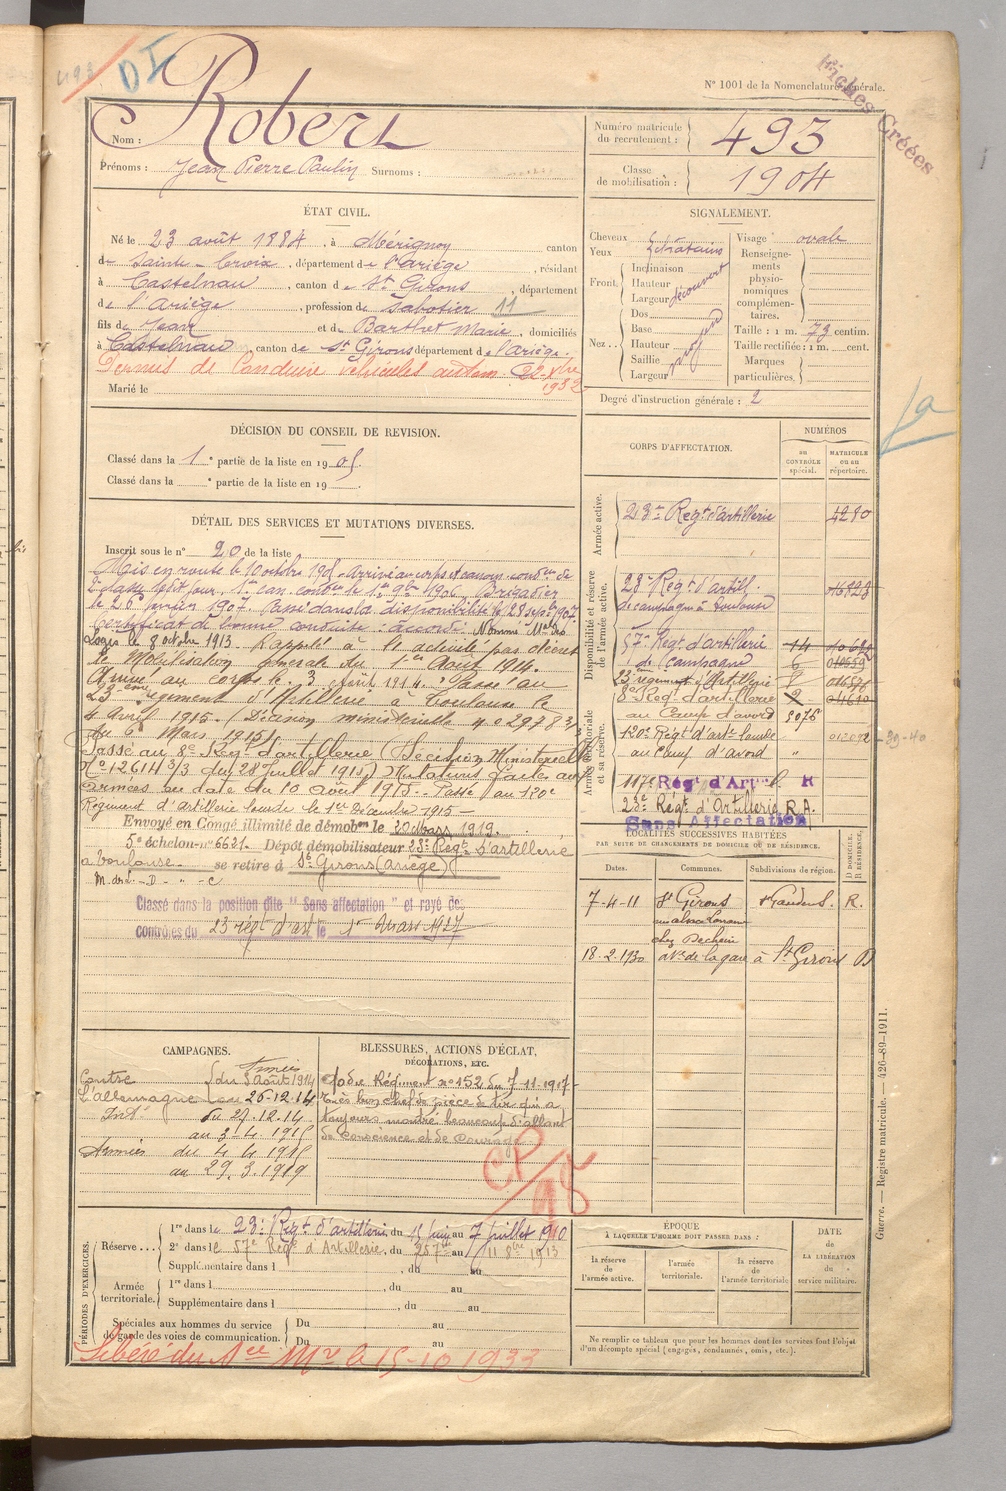 493
DI
N° 1001 de la Nomenclature générale.
Fiches Créées
Nom : Robert
Prénoms : Jean Pierre Paulin Surnoms :
Numéro matricule du recrutement : 493
Classe de mobilisation : 1904
ÉTAT CIVIL.
Né le 23 août 1884, à Mérignon canton
de Sainte-Croix, département de l'Ariège, résidant
à Castelnau, canton de St Girons, département
de l'Ariège, profession de Sabotier 11
fils de Jean et de Barthet Marie, domiciliés
à Castelnau, canton de St Girons département de l'Ariège.
Permis de Conduire véhicules autom. 22 Xbre 1932
Marié le
SIGNALEMENT.
Cheveux
Yeux
châtains
Front.
Inclinaison
Hauteur
Largeur
découvert
Nez...
Dos
Base
Hauteur
Saillie
Largeur
Visage ovale
Renseignements physionomiques complémentaires.
Taille : 1 m. 73 centim.
Taille rectifiée : 1 m. cent.
Marques particulières.
Degré d'instruction générale : 2
DÉCISION DU CONSEIL DE REVISION.
Classé dans la 1re partie de la liste en 1905
Classé dans la e partie de la liste en 19
DÉTAIL DES SERVICES ET MUTATIONS DIVERSES.
Inscrit sous le n° 20 de la liste
Mis en route le 10 octobre 1905. Arrivé au corps et canon. condeur de
2e classe ledit jour, 1er can. condeur le 1er 9bre 1906, Brigadier
le 26 janvier 1907. Passé dans la disponibilité le 28 septbre 1907.
Certificat de bonne conduite : accordé. Nommé Mal des
Logis le 8 octobre 1913. Rappelé à l'activité par décret
de Mobilisation générale du 1er Août 1914.
Arrivé au corps le 3 1914. Passé au
23ème régiment d'Artillerie à Toulouse le
4 Avril 1915. (Décision ministérielle n° 29783
du 6 Mars 1915)
Passé au 8e Régt d'artillerie (Décision Ministérielle
No 12614 3/3 du 28 Juillet 1915) Mutations faites aux
armées au date du 10 août 1915. Passé au 120e
Régiment d'artillerie lourde le 1er Décembre 1915
Envoyé en Congé illimité de démobon le 30 Mars 1919.
5e échelon-n° 6621. Dépôt démobilisateur 23e Régt d'artillerie
à Toulouse. se retire à St Girons (Ariège)
Classé dans la position dite "Sans affectation" et rayé des
contrôles du 23 régt d'art le 1er Mars 1927
CORPS D'AFFECTATION.
NUMÉROS
au CONTRÔLE spécial.
MATRICULE ou au répertoire.
Armée active.
23e Régt d'artillerie 4280
Disponibilité et réserve de l'armée active.
23e Régt d'artill.
de campagne à Toulouse
57e Régt d'artillerie 14
de Campagne 6
23 régiment d'Artillerie
8e Régt d'artillerie 2
Armée territoriale et sa réserve.
120e Régt d'arte lourde
117e Régt d'Art R
23e Régt d'Artillerie R.A.
Sans Affectation
1a
LOCALITÉS SUCCESSIVES HABITÉES
PAR SUITE DE CHANGEMENTS DE DOMICILE OU DE RÉSIDENCE.
Dates.
Communes.
Subdivisions de région.
D DOMICILE. R RÉSIDENCE.
7-4-11 St Girons St Gaudens. R.
18.2.1930 Ave de la gare à St Girons D
CAMPAGNES.
Contre l'Allemagne
Armées
du 3 Août 1914
au 26-12-14
Intr du 27.12.14
au 3-4-1915
Armées du 4 4 1915
au 29.3.1919
BLESSURES, ACTIONS D'ÉCLAT,
DÉCORATIONS, ETC.
O. du Régiment n° 152 du 7-11-1917
Très bon chef de pièce de tir qui a
toujours montré beaucoup d'allant
de conscience et de courage.
CP/98
PÉRIODES D'EXERCICES.
Réserve...
1re dans le 23e Régt d'artillerie du 15 Juin au 7 juillet 1910
2e dans le 57e Régt d'Artillerie, du 25 7bre au 11 8bre 1913
Supplémentaire dans l , du au
Armée territoriale.
1re dans l , du au
Supplémentaire dans l , du au
Spéciales aux hommes du service de garde des voies de communication.
Du au
Du au
Libéré du Sce Mre le 15-10-1933
ÉPOQUE
À LAQUELLE L'HOMME DOIT PASSER DANS :
la réserve de l'armée active.
l'armée territoriale.
la réserve de l'armée territoriale
DATE de la LIBÉRATION du service militaire.
Ne remplir ce tableau que pour les hommes dont les services font l'objet
d'un décompte spécial (engagés, condamnés, omis, etc.).
Guerre. — Registre matricule. — 426-89-1911.